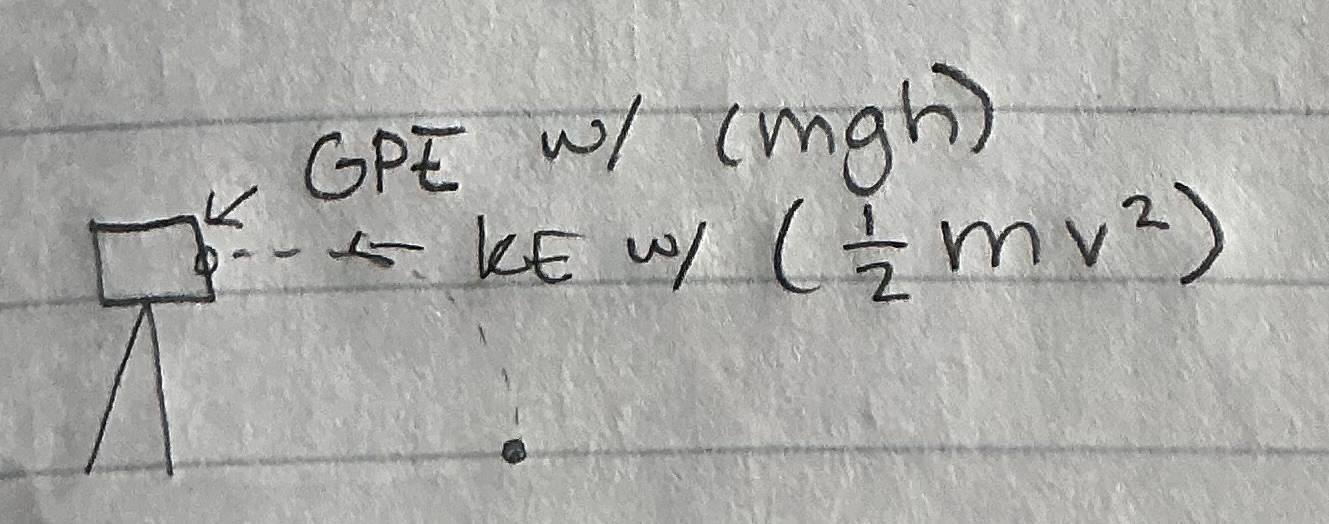 GPE w/ (mgh)
KE w/ (½mv²)